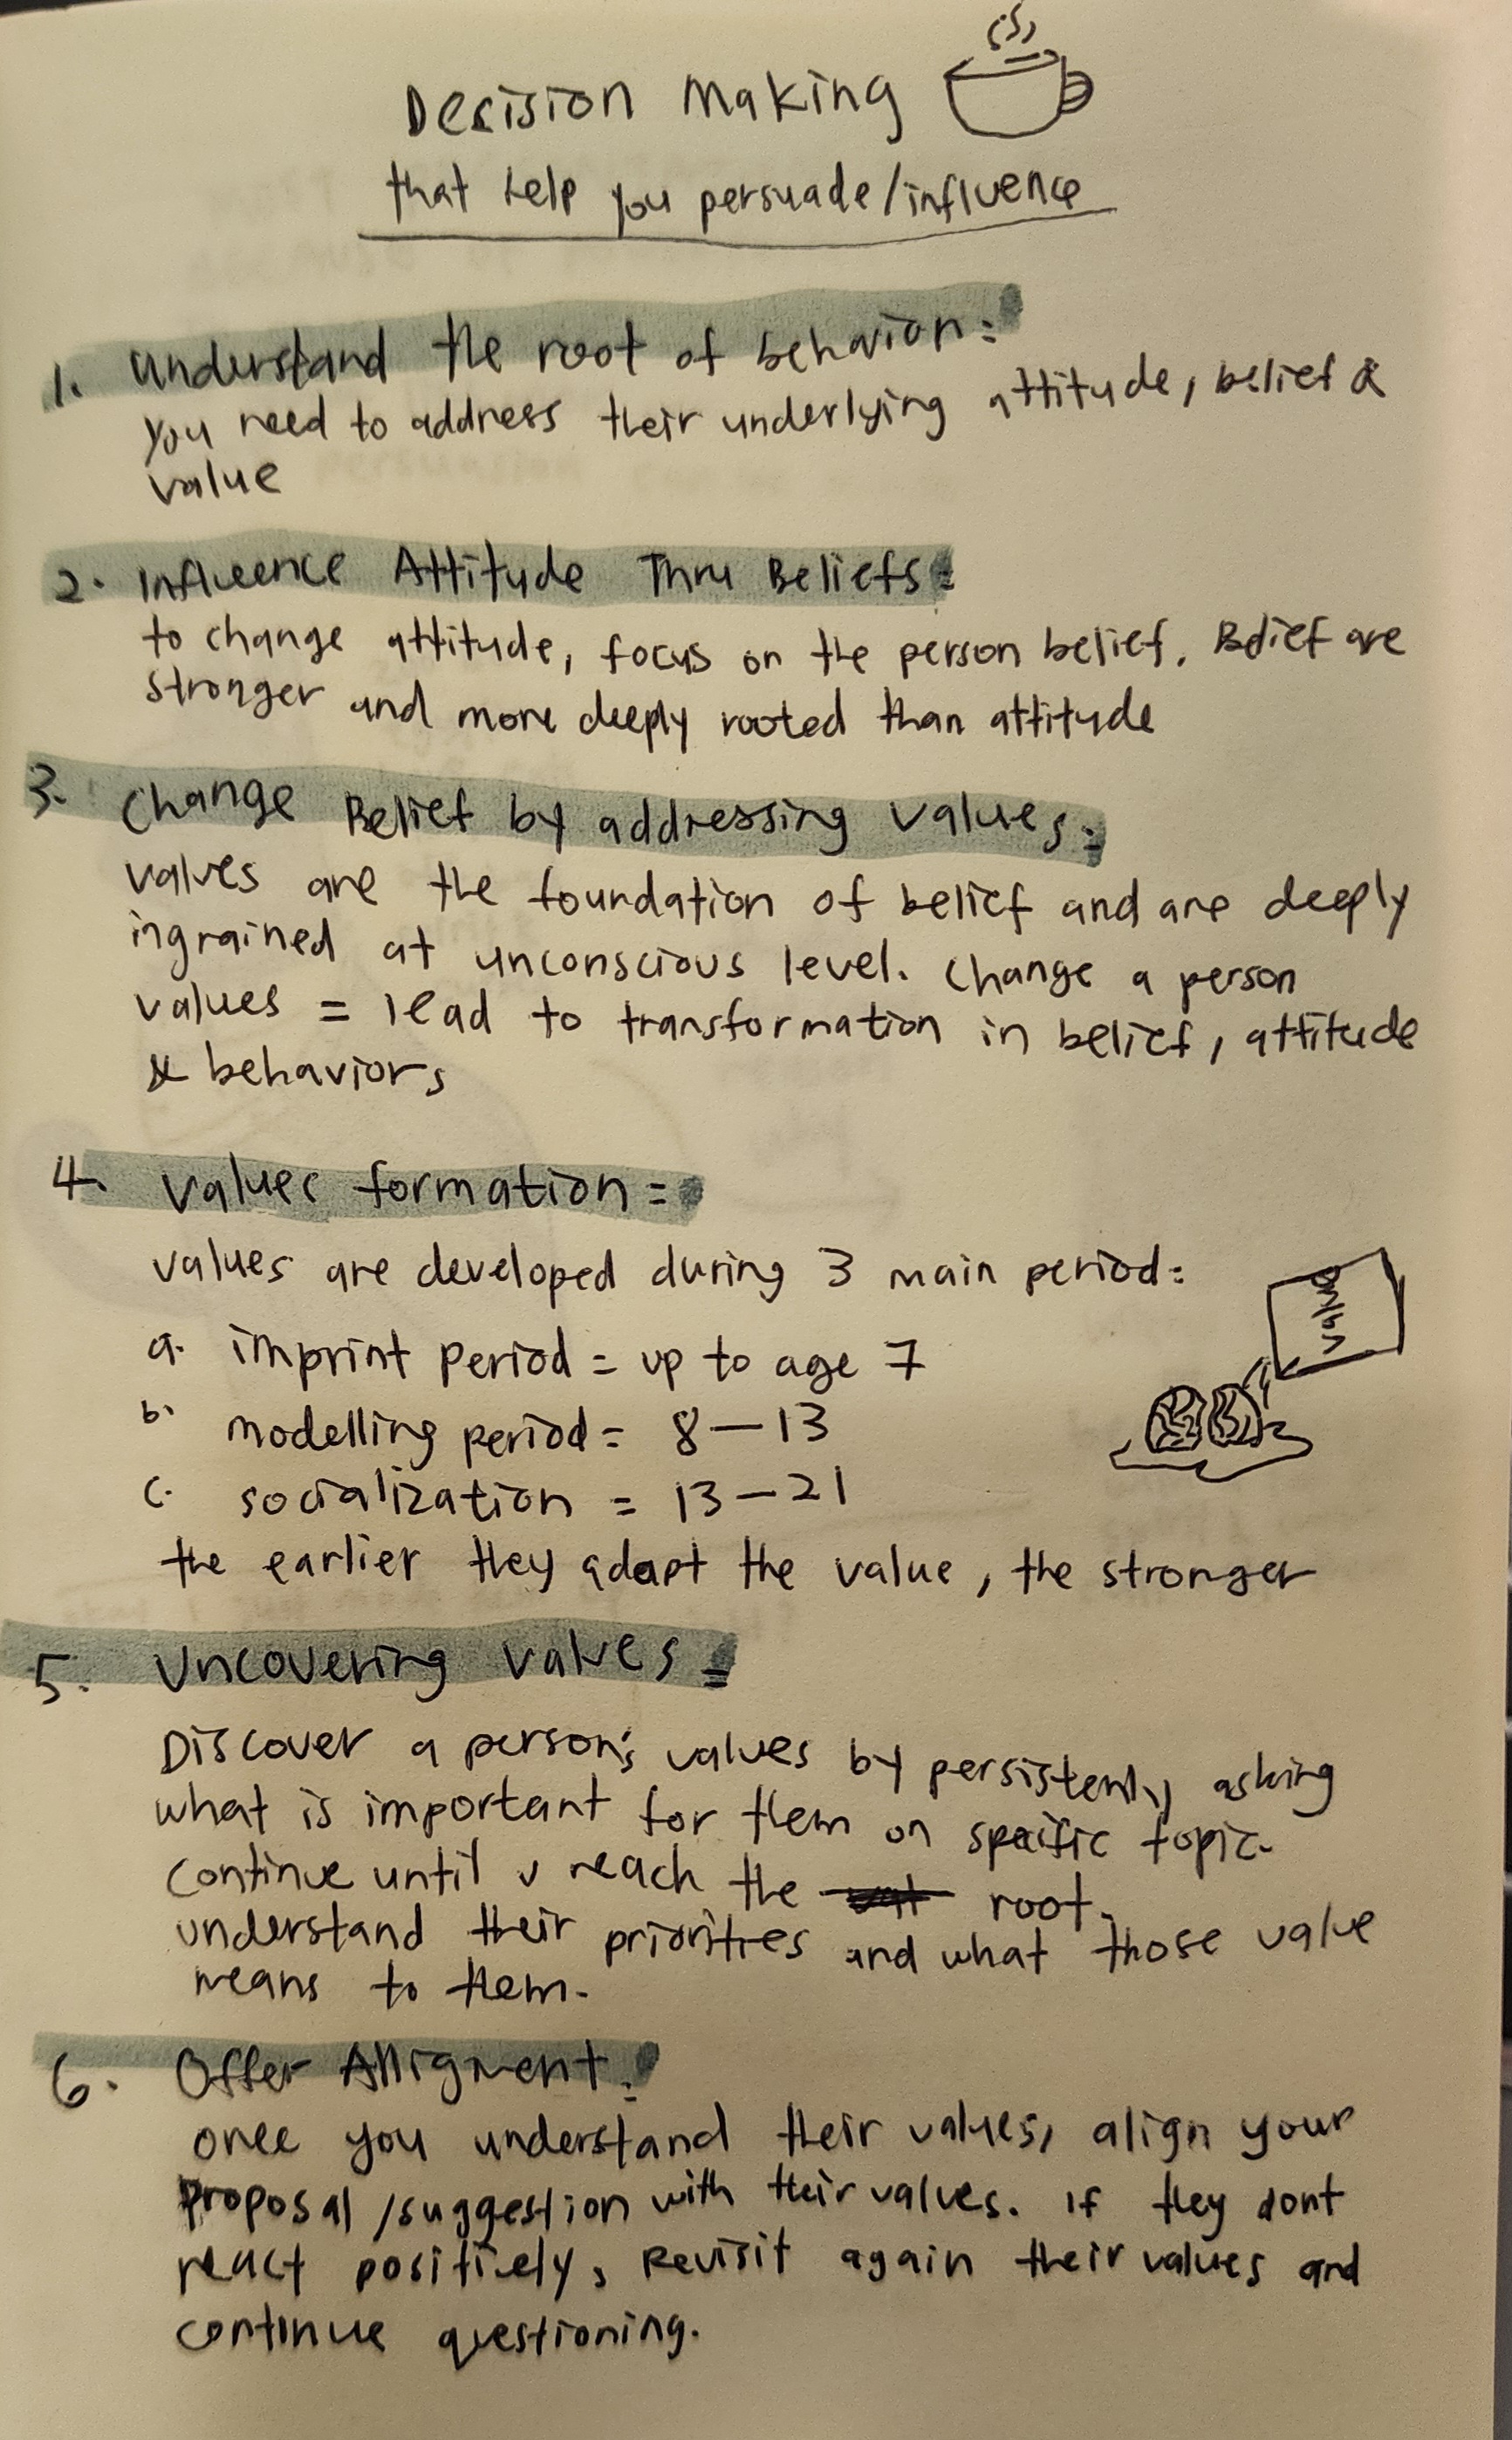 Decision Making
that help you persuade/influence
1. Understand the root of behavior:
you need to address their underlying attitude, belief &
value
2. Influence Attitude Thru Beliefs:
to change attitude, focus on the person belief. Belief are
stronger and more deeply rooted than attitude
3. Change Belief by addressing values:
values are the foundation of belief and are deeply
ingrained at unconscious level. Change a person
values = lead to transformation in belief, attitude
& behaviors
4. Values formation =
values are developed during 3 main period:
a. imprint period = up to age 7
b. modelling period = 8 – 13
c. socialization = 13 – 21
the earlier they adapt the value, the stronger
value
5. Uncovering values =
Discover a person's values by persistently asking
what is important for them on specific topic.
Continue until u reach the root.
understand their priorities and what those value
means to them.
6. Offer Alligment:
once you understand their values, align your
proposal/suggestion with their values. If they dont
react positively, Revisit again their values and
continue questioning.